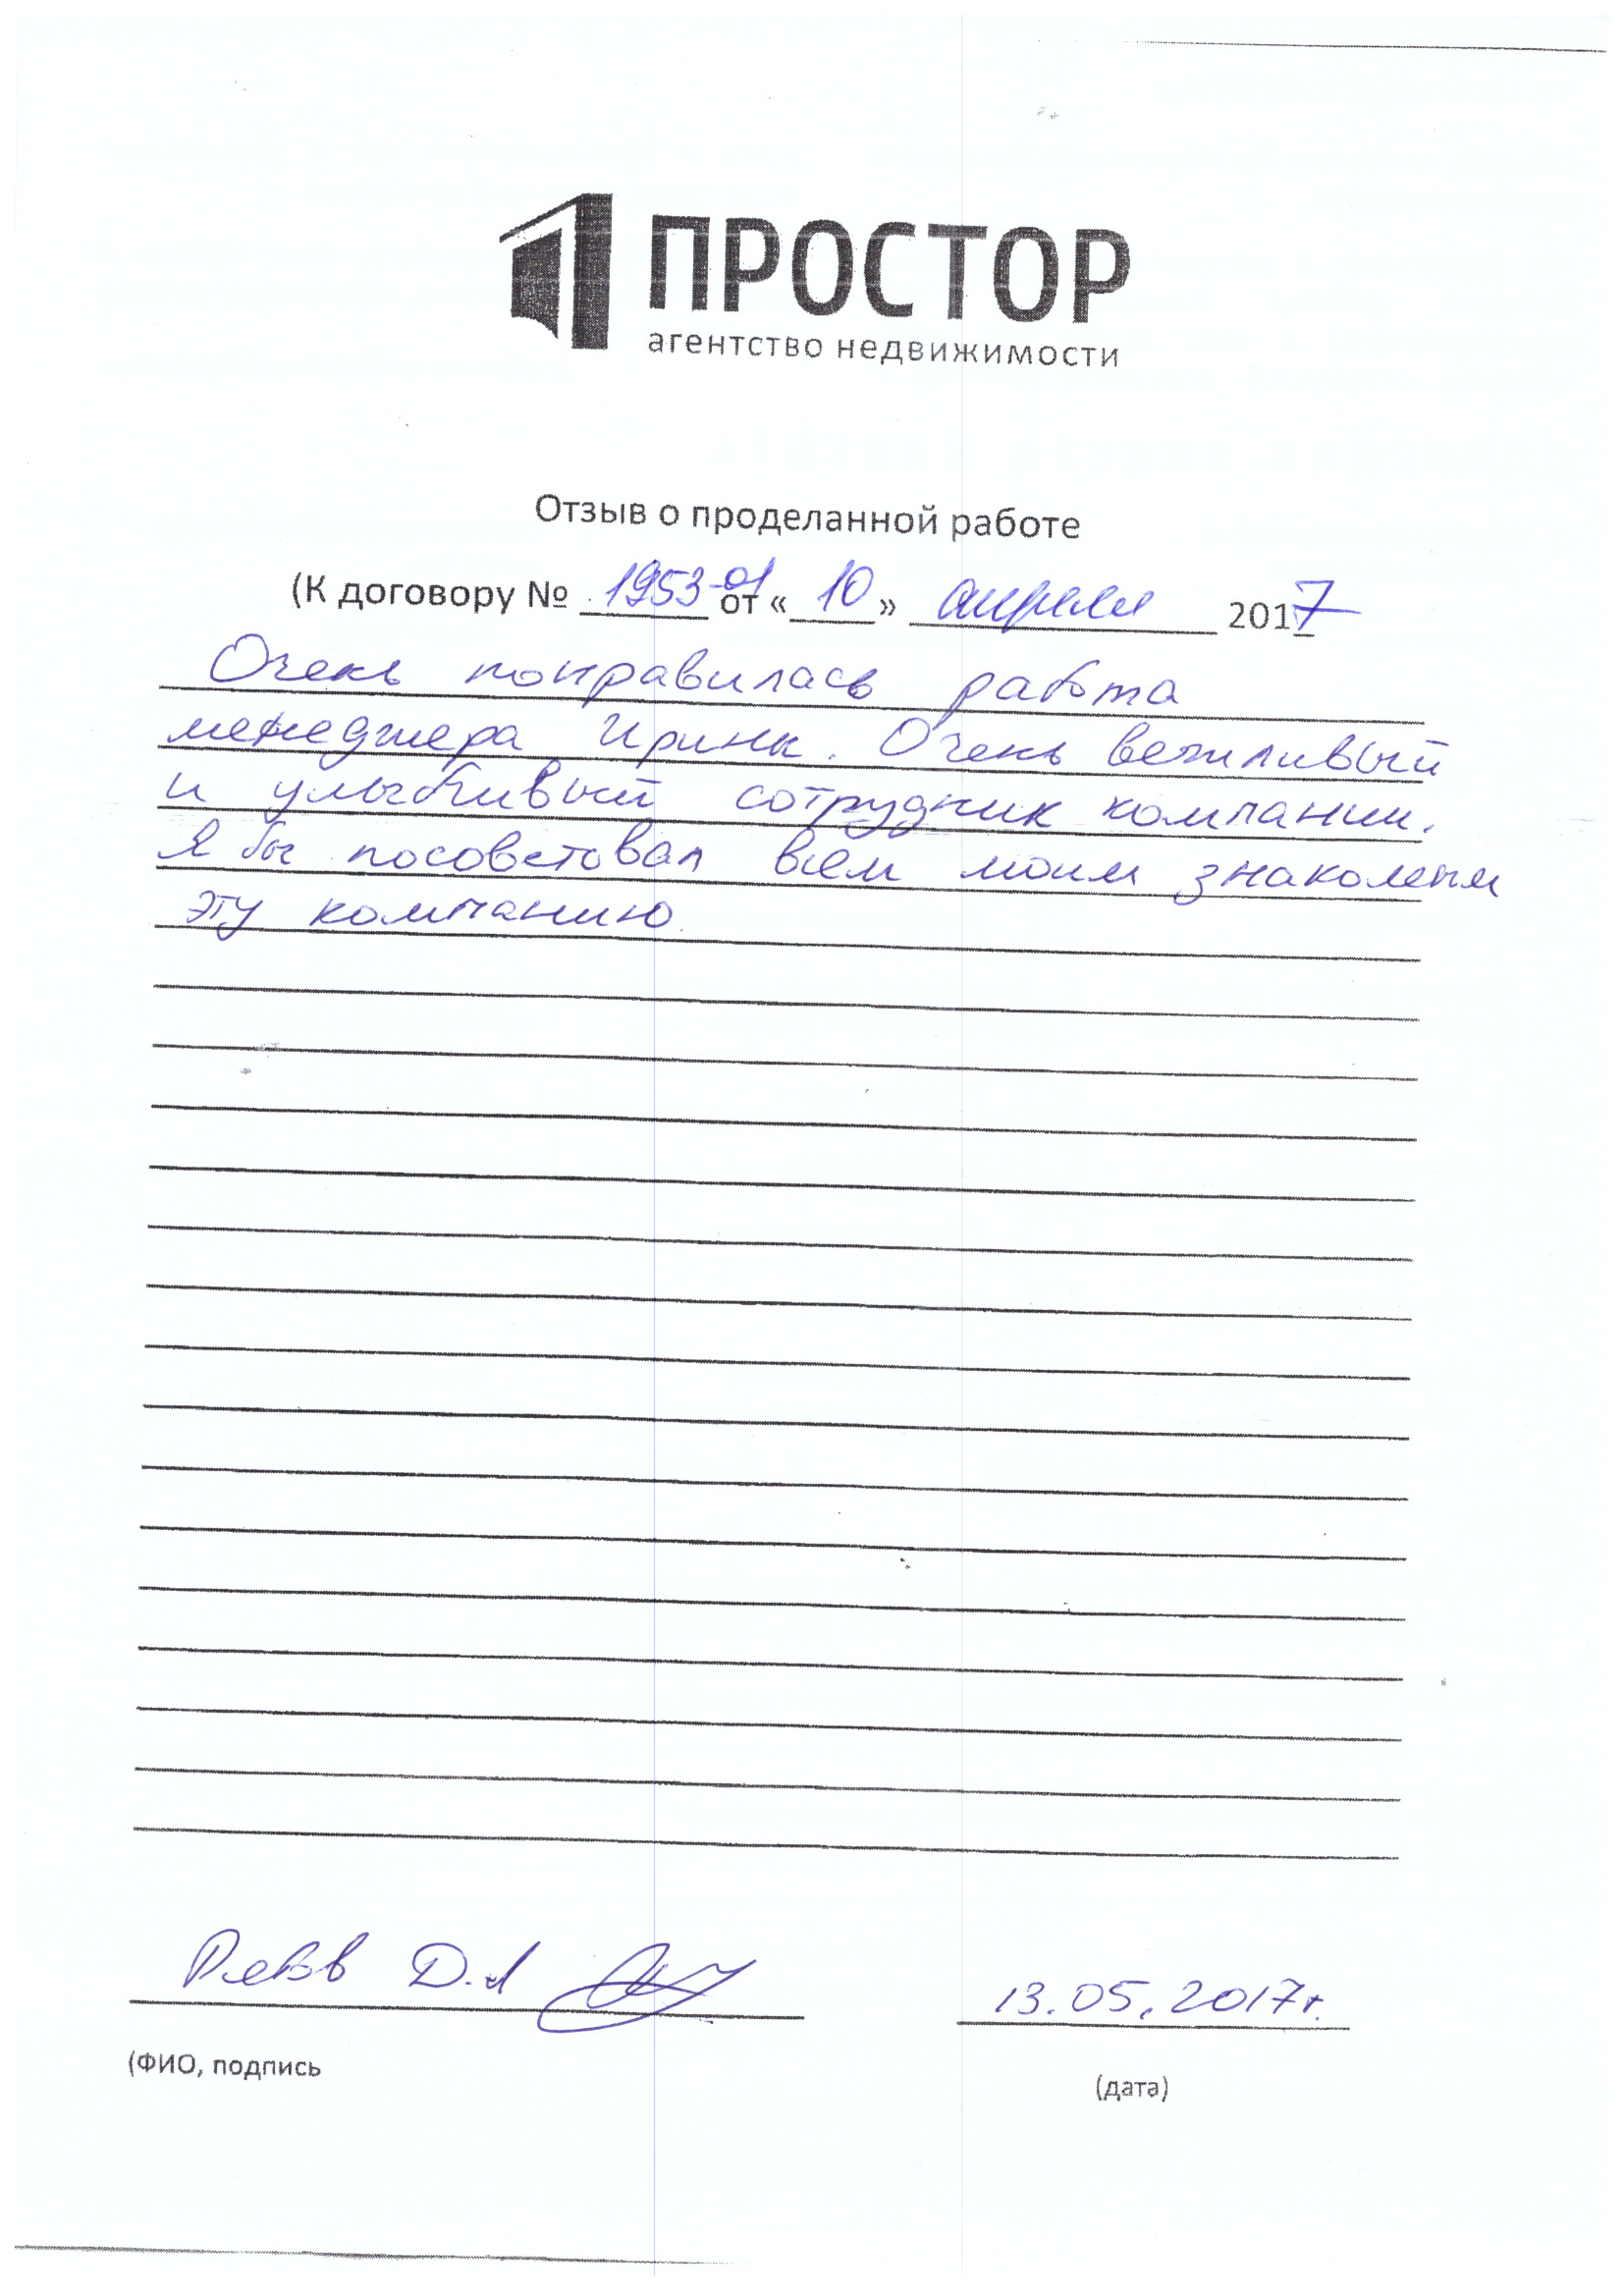 ПРОСТОР
агентство недвижимости
Отзыв о проделанной работе
(К договору № 1953-01 от « 10 » апреля 2017
Очень понравилась работа
менеджера Ирины. Очень вежливый
и улыбчивый сотрудник компании.
Я бы посоветовал всем моим знакомым
эту компанию.
Д.А
13.05.2017г.
(ФИО, подпись
(дата)